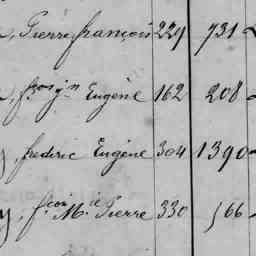 , Pierre françois 229 731
, f.çois j.n Eugène 162 208
, frédéric Eugène 304 1390
, f.çois M.ie Pierre 330 566